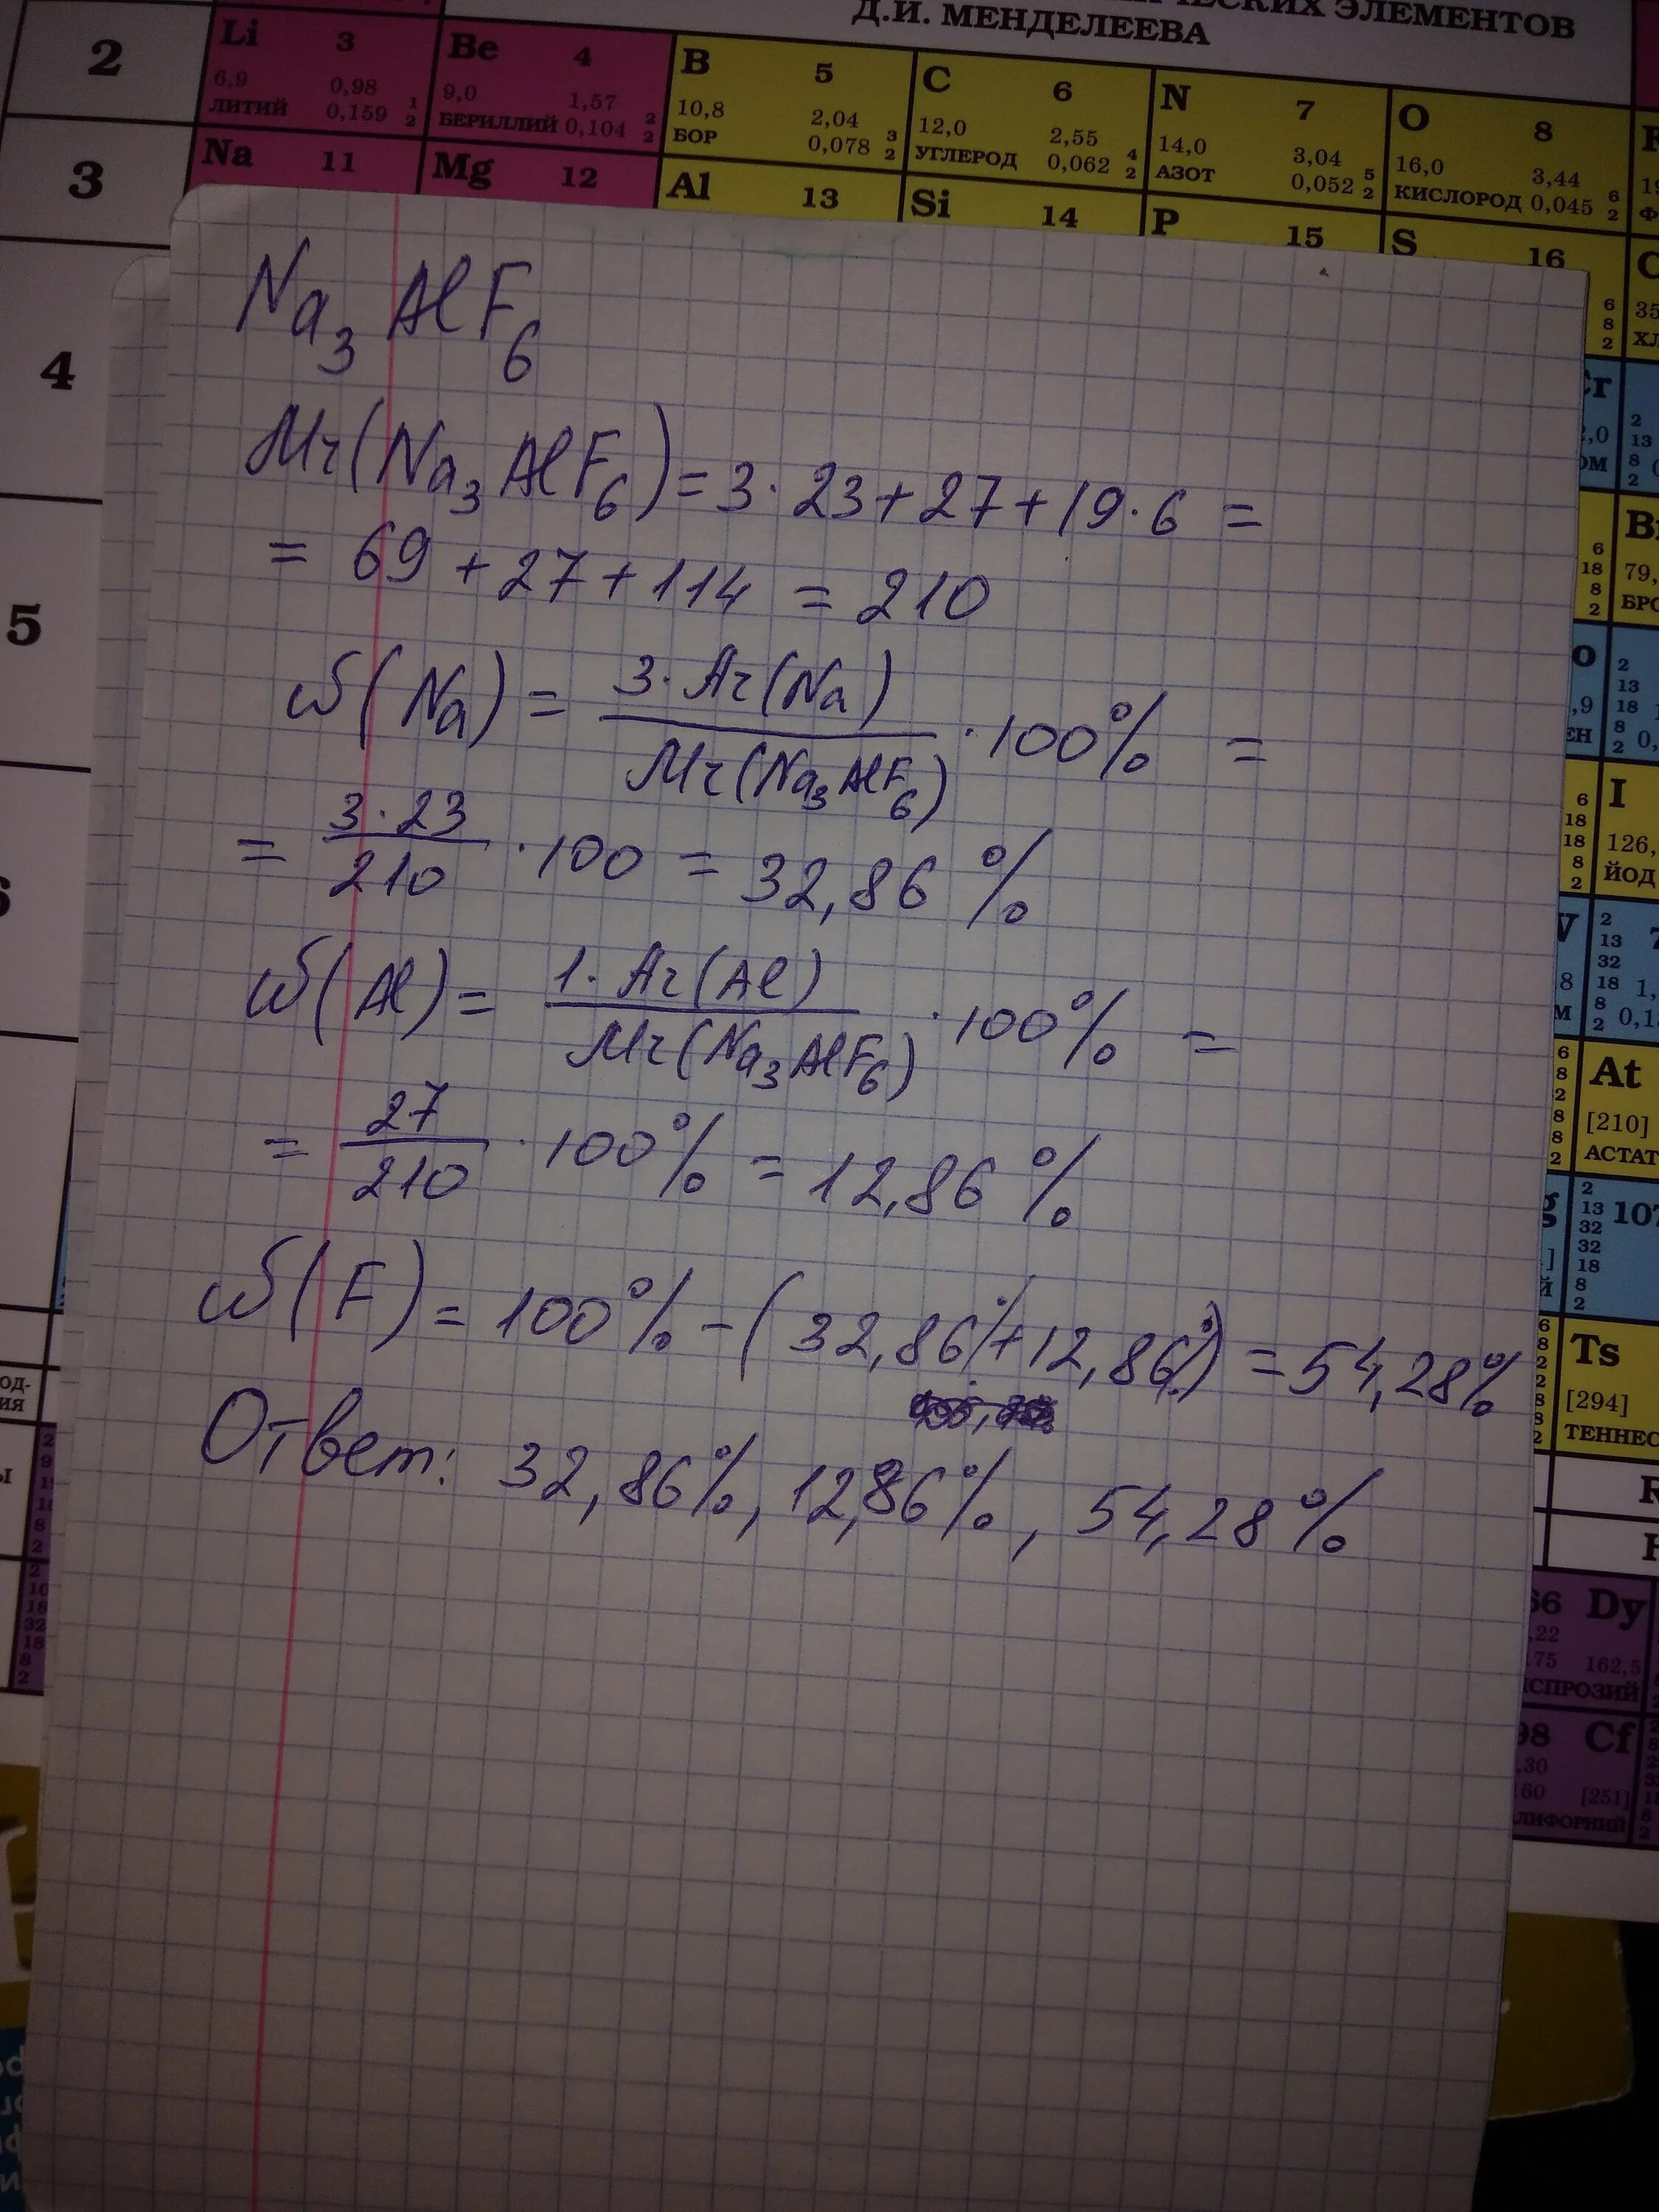 ЕСКИХ ЭЛЕМЕНТОВ
Д.И. МЕНДЕЛЕЕВА
2
Li 3
6,9 0,98
ЛИТИЙ 0,159
1
2
Be 4
9,0 1,57
БЕРИЛЛИЙ 0,104
2
2
B 5
10,8 2,04
БОР 0,078
3
2
C 6
12,0 2,55
УГЛЕРОД 0,062
4
2
N 7
14,0 3,04
АЗОТ 0,052
5
2
O 8
16,0 3,44
КИСЛОРОД 0,045
6
2
3
Na 11
Mg 12
Al 13
Si 14
P 15
S 16
4
5
Na₃AlF₆
Mr(Na₃AlF₆)=3·23+27+19·6=
= 69+27+114=210
ω(Na)= 3·Ar(Na) / Mr(Na₃AlF₆) ·100% =
= 3·23 / 210 ·100 = 32,86 %
ω(Al)= 1·Ar(Al) / Mr(Na₃AlF₆) ·100% =
= 27 / 210 ·100% = 12,86 %
ω(F)= 100% -(32,86%+12,86%)=54,28%
Ответ: 32,86%, 12,86%, 54,28%
6
8
2
35
ХЛ
Cr
2
13
8
2
Br
79,
БРО
6
18
8
2
2
13
18
8
2
I
126,
ЙОД
6
18
18
8
2
2
13
32
18
8
2
At
[210]
АСТАТ
2
13
32
32
18
8
2
107
Ts
[294]
ТЕННЕС
66 Dy
,22
,75 162,5
ИСПРОЗИЙ
98 Cf
,30
160 [251]
ЛИФОРНИЙ